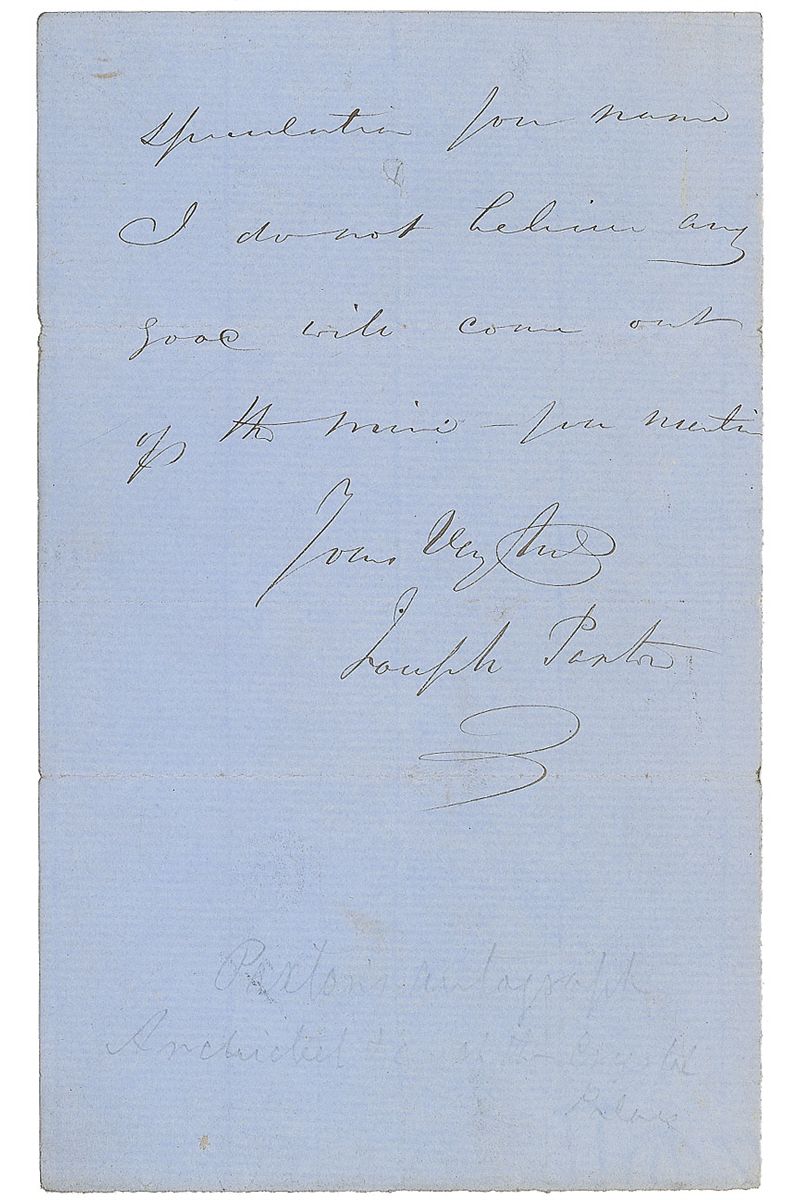 speculation you name
I do not believe any
good will come out
of the mine – you mention
Yours Very truly
Joseph Paxton
Paxton's autograph
Architect &c of the Crystal
Palace